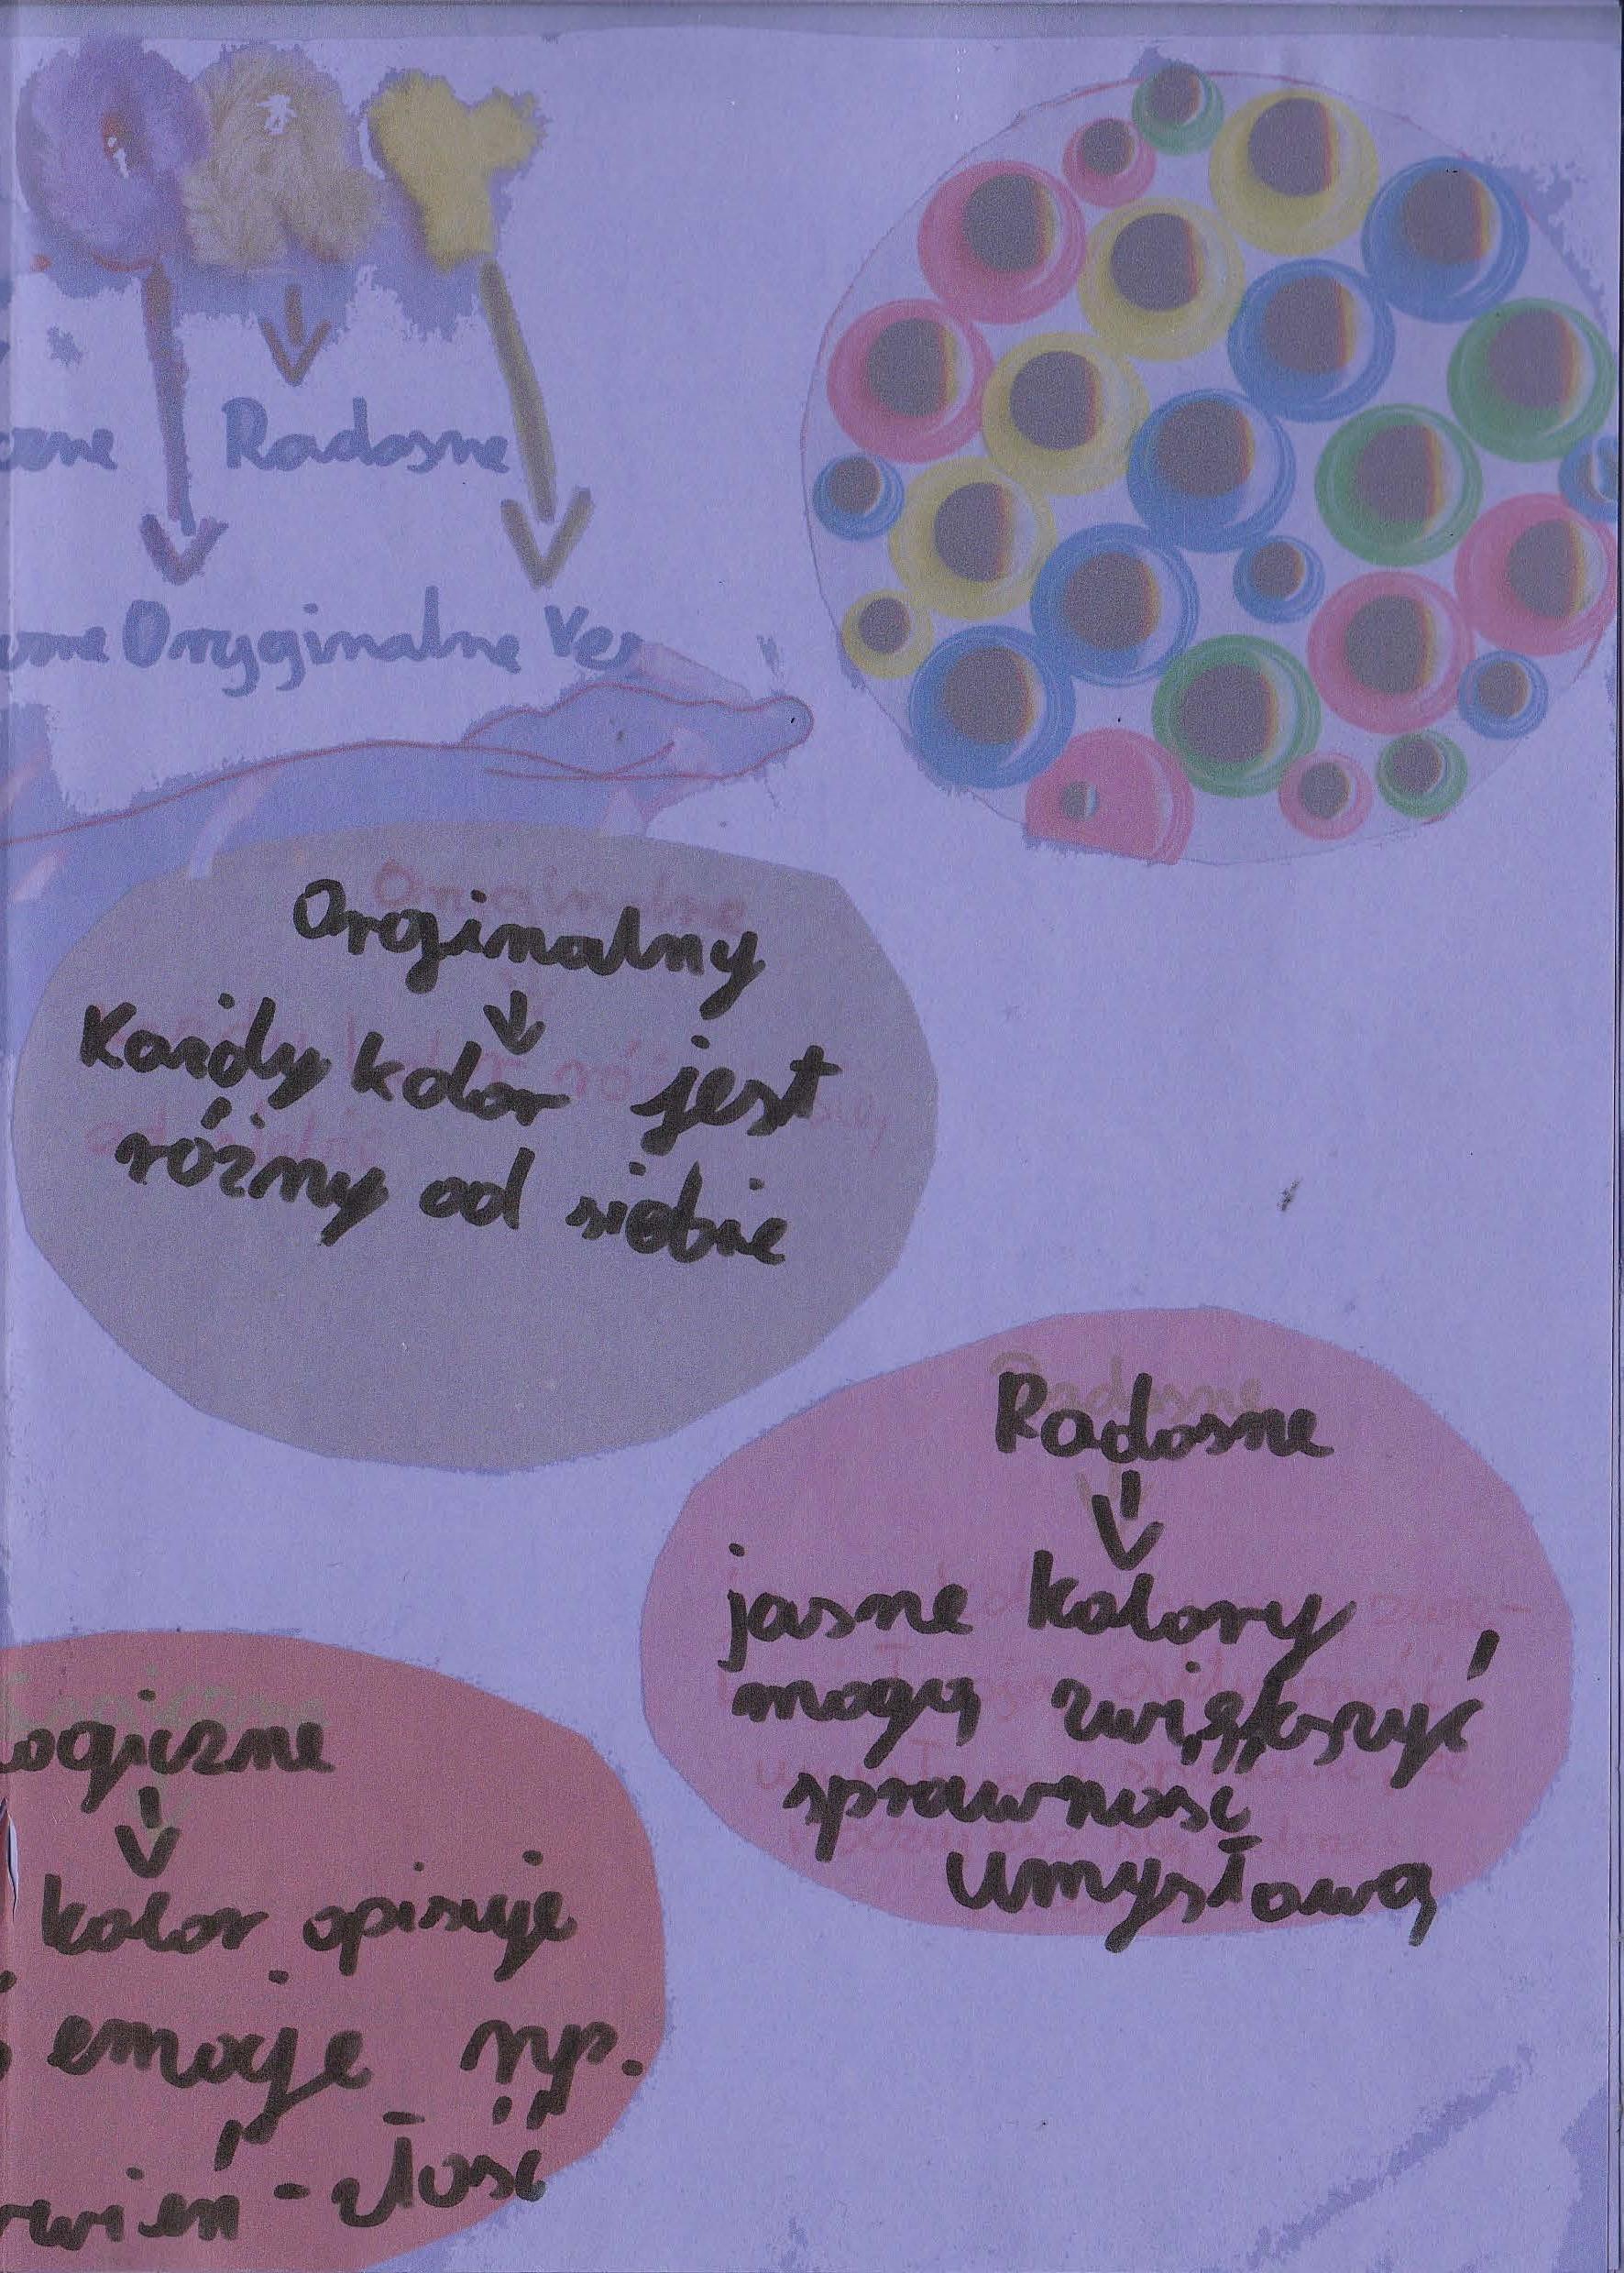 Radosne
Oryginalne Ves
Orginalny
Każdy kolor jest
różny od siebie
Radosne
jasne kolory
mogą zwiększyć
sprawność
umysłową
ogiczne
kolor opisuje
emocje np.
rwień - złość